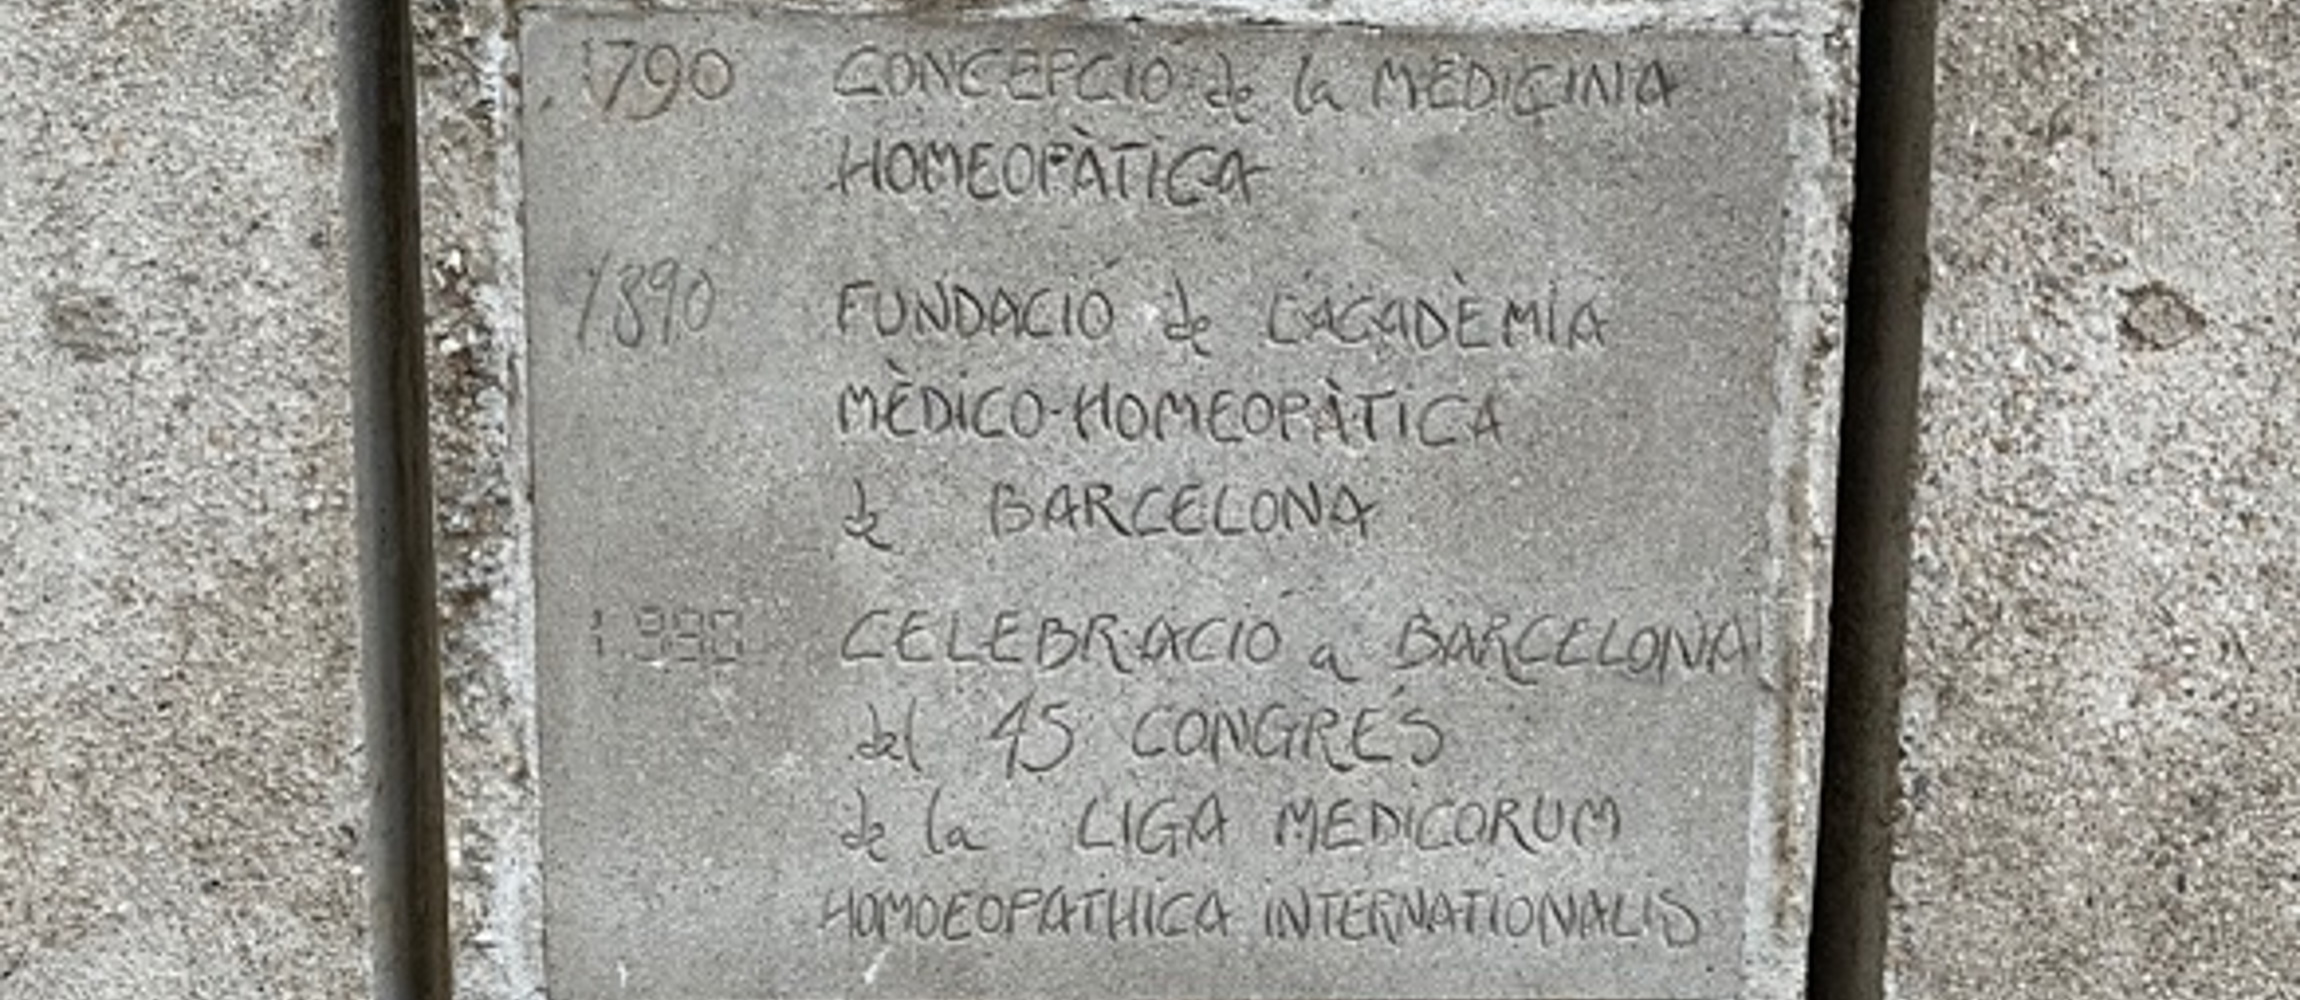 1790 CONCEPCIÓ de la MEDICINA
HOMEOPÀTICA
1890 FUNDACIÓ de L'ACADÈMIA
MÈDICO-HOMEOPÀTICA
de BARCELONA
1.990 CELEBRACIÓ a BARCELONA
del 45 CONGRÉS
de la LIGA MEDICORUM
HOMOEOPATHICA INTERNATIONALIS